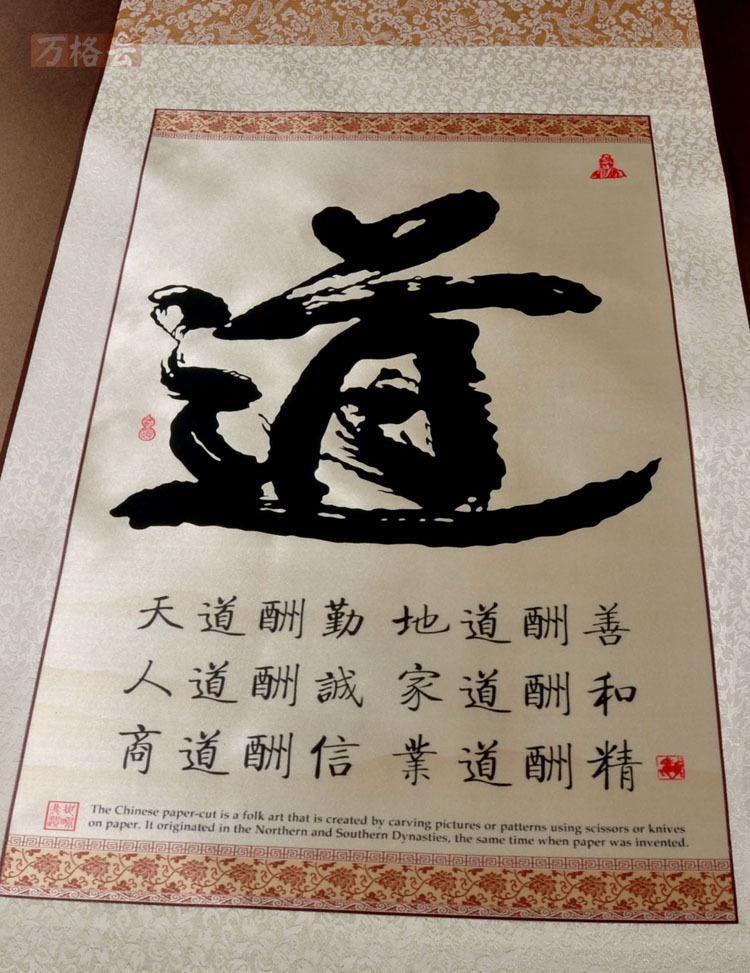 万格云
道
天道酬勤 地道酬善
人道酬誠 家道酬和
商道酬信 業道酬精
The Chinese paper-cut is a folk art that is created by carving pictures or patterns using scissors or knives
on paper. It originated in the Northern and Southern Dynasties, the same time when paper was invented.